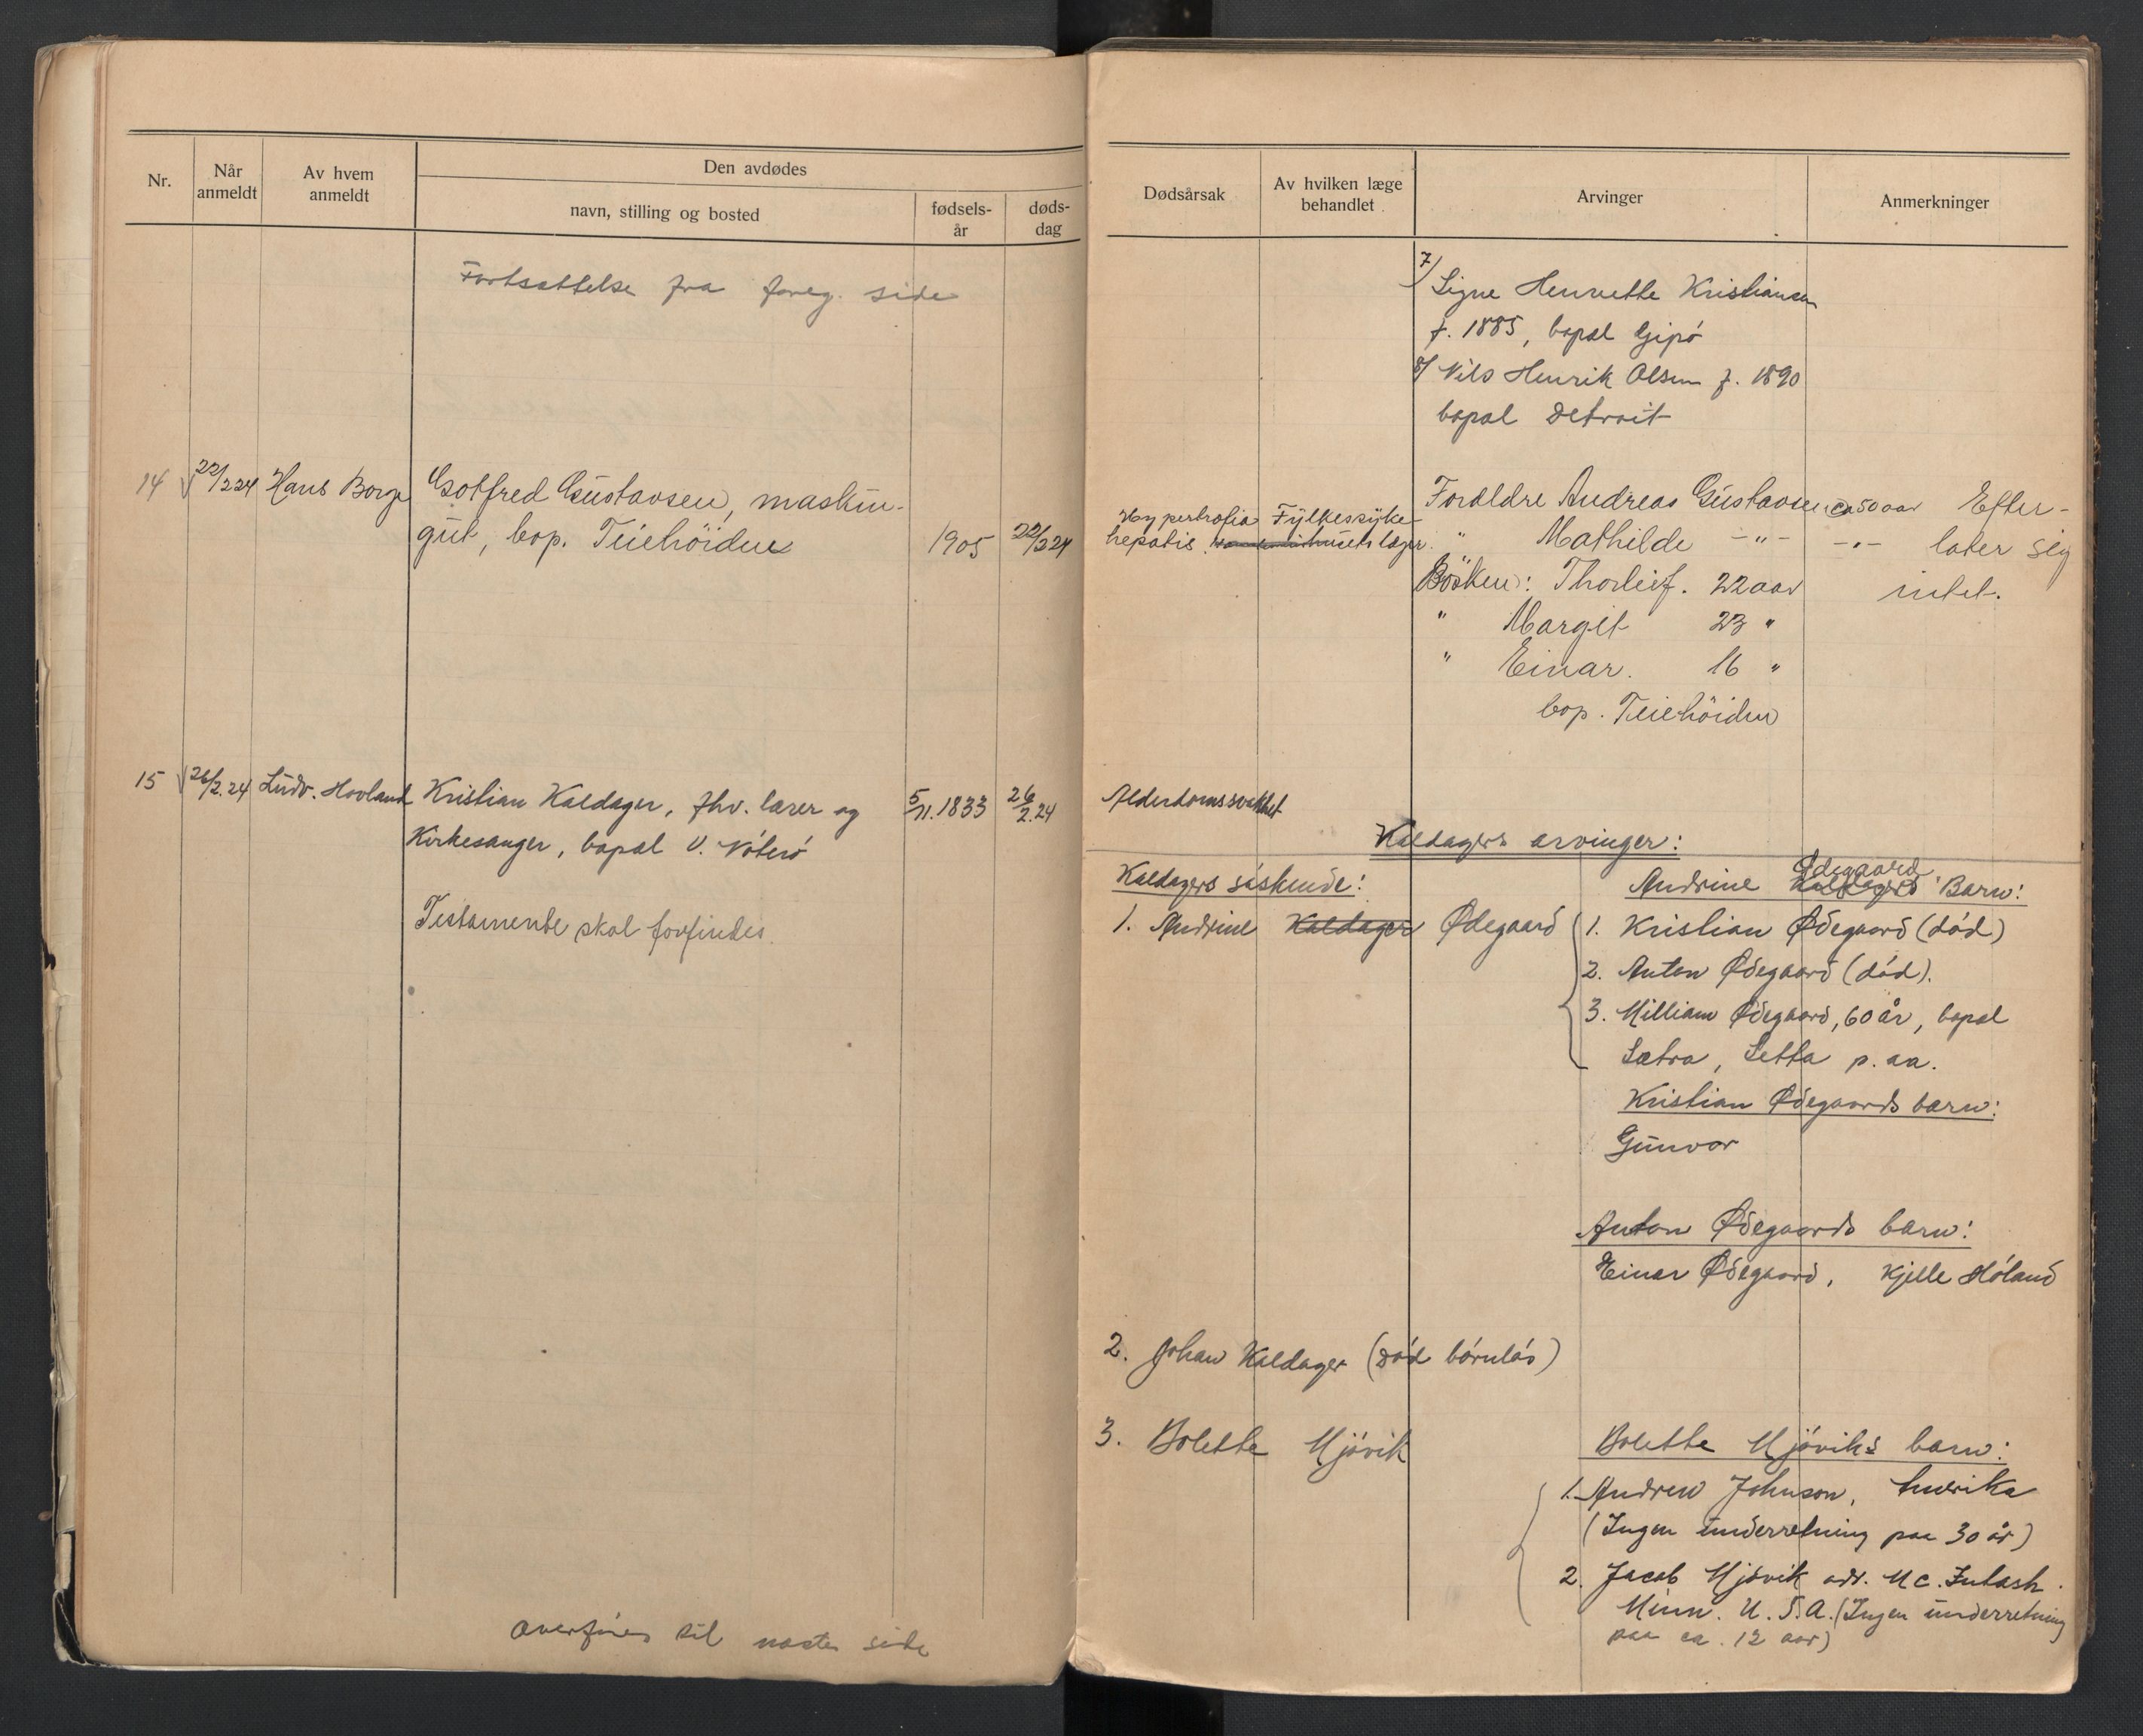 Nr.
Når anmeldt
Av hvem anmeldt
Den avdødes
navn, stilling og bosted
fødsels-år
døds-dag
Fortsettelse fra foreg. side
14 √ 22/2 24 Hans Borge Gotfred Gustavsen, maskin-
gut, bop. Teiehöiden 1905 22/2 24
15 √ 26/2.24 Ludv. Hovland Kristian Kaldager, fhv. lærer og 5/11.1833 26/2.24
Kirkesanger, bopæl V. Nöterö
Testamente skal forfindes.
Overföres til næste side
Dødsårsak
Av hvilken læge behandlet
Arvinger
Anmerkninger
7/ Signe Henriette Kristiansen
f. 1885, bopæl Gipö
8/ Nils Henrik Olsen f. 1890
bopæl Detroit
Forældre Andreas Gustavsen ca 50 aar Efter-
Hypertrofia Fylkessyke-
hepatis. husets læger. " Mathilde -"- -"- later sig
Sösken: Thorleif. 22 aar intet.
" Margit 23 "
" Einar. 16 "
bop. Teiehöiden
Alderdomssvakhet
Kaldagers arvinger:
Kaldagers söskende:
Andrine Kaldagers Ödegaard Barn:
1. Andrine Kaldager Ødegaard
1. Kristian Ødegaard (död)
2. Anton Ødegaard (död).
3. William Ødegaard, 60 år, bopæl
Sætra, Setta p. aa.
Kristian Ødegaards barn:
Gunvor
Anton Ødegaards barn:
Einar Ødegaard, Kjelle Höland
2. Johan Kaldager (död börnlös)
3. Bolette Mjövik
Bolette Mjöviks barn:
1. Andrew Johnson, Amerika
(Ingen underretning paa 30 år)
2. Jacob Mjövik adr. Mc.Intosh.
Minn. U.S.A. (Ingen underretning
paa ca. 12 aar)